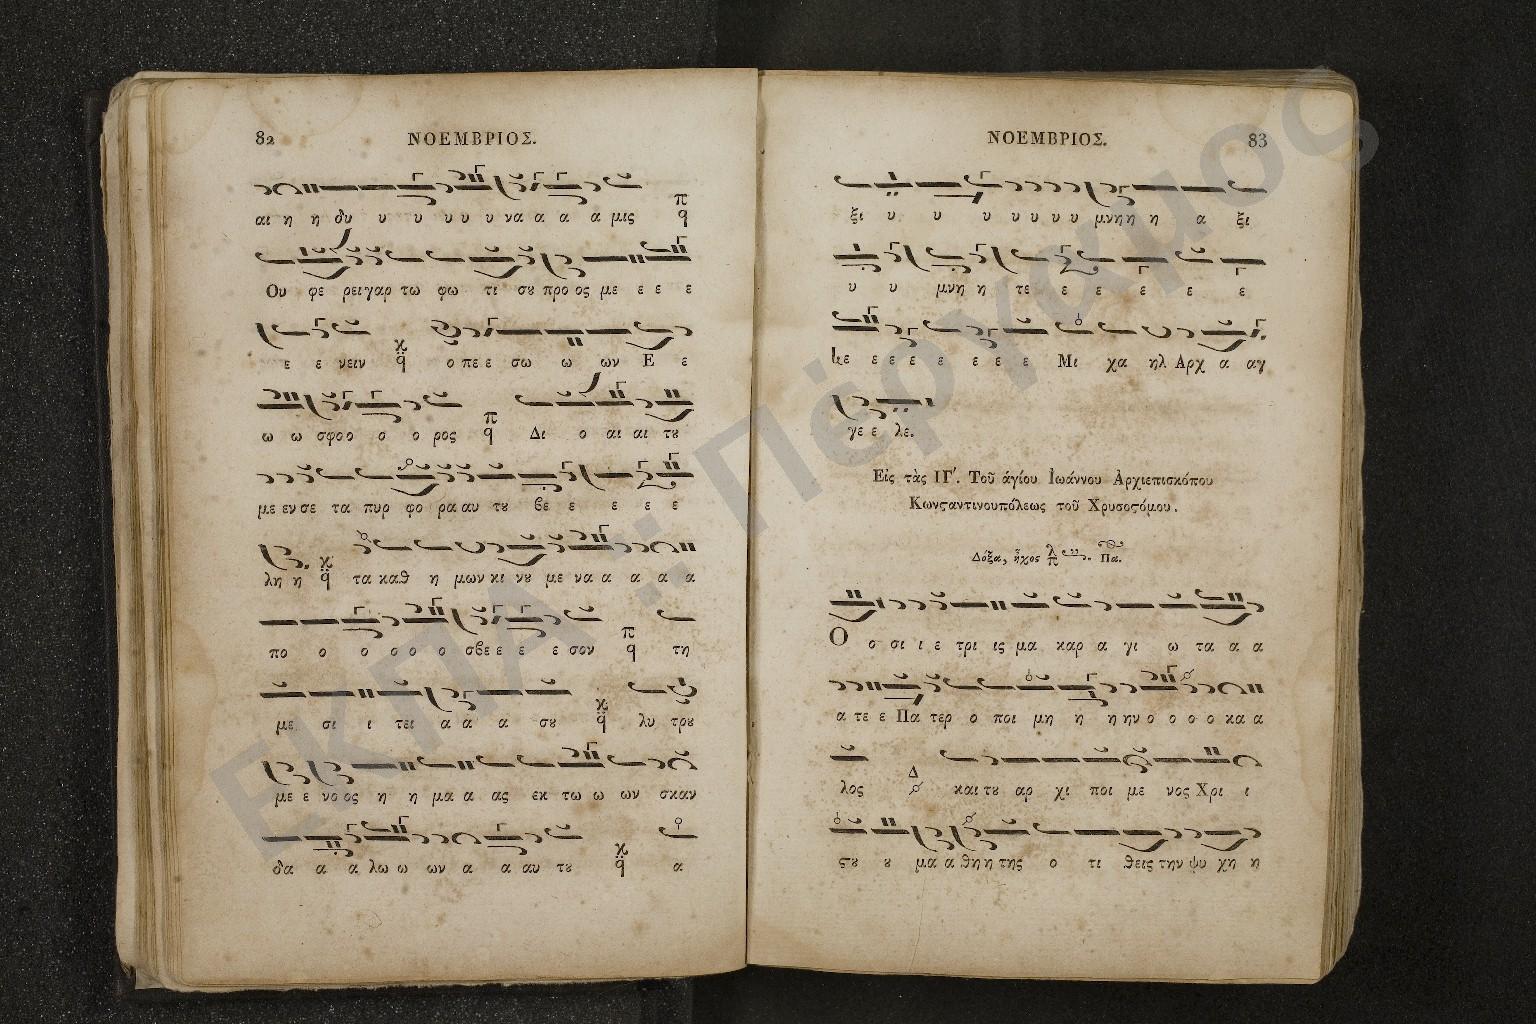 82 ΝΟΕΜΒΡΙΟΣ.
αι η η δυ υ υ υ υ υ να α α α μις
Ου φε ρει γαρ τω φω τι σȣ προ ος με ε ε ε
ε ε νειν ο πε ε σω ω ων Ε ε
ω ω σφο ο ο ο ρος Δι ο αι αι τȣ
με εν σε τα πυρ φο ρα αυ τȣ βε ε ε ε ε
λη η τα καθ η μων κι νȣ με να α α α α
πο ο ο ο ο ο σβε ε ε ε ε σον τη
με σι ι τει α α α σȣ λυ τρȣ
με ε νο ος η η μα α ας εκ τω ω ων σκαν
δα α α λω ω ων α α αυ τȣ α
ΝΟΕΜΒΡΙΟΣ. 83
ξι υ υ υ υ υ υ υ μνη η η α ξι
υ υ μνη η τε ε ε ε ε ε
κε ε ε ε ε ε ε ε Μι χα ηλ Αρχ α αγ
γε ε λε.
Εἰς τὰς ΙΓ΄. Τοῦ ἁγίου Ἰωάννου Ἀρχιεπισκόπου
Κωνςαντινουπόλεως τοῦ Χρυσοςόμου.
Δόξα, ἦχος Πα.
Ο ο σι ι ε τρι ις μα καρ α γι ω τα α α
α τε ε Πα τερ ο ποι μη η η ην ο ο ο ο κα α
λος και τȣ αρ χι ποι με νος Χρι ι
ςȣ ȣ μα α θη η της ο τι θεις την ψυ χη η
ΕΚΠΑ :: Πέργαμος